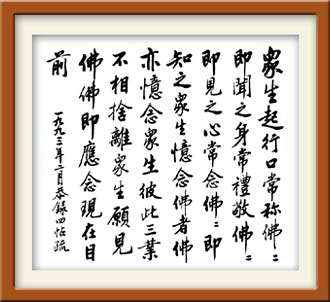 眾生起行口常称佛〻
即聞之身常禮敬佛〻
即見之心常念佛〻即
知之眾生憶念佛者佛
亦憶念眾生彼此三業
不相捨離眾生願見
佛佛即應念現在目
前
一九九三年二月恭錄四帖疏